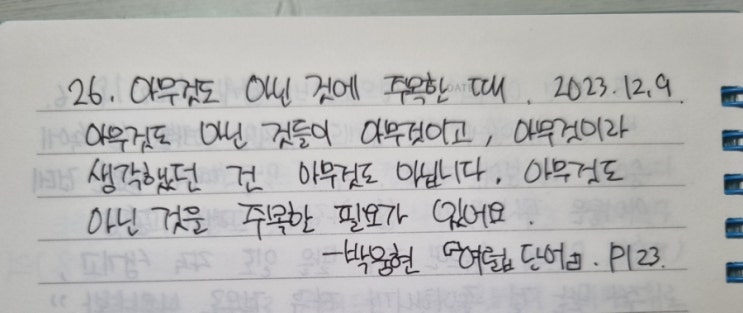 26. 아무것도 아닌 것에 주목한 때. 2023.12.9.
아무것도 아닌 것들이 아무것이고, 아무것이라
생각했던 건 아무것도 아닙니다. 아무것도
아닌 것을 주목한 필요가 있어요.
-박웅현 『여덟 단어』. P123.